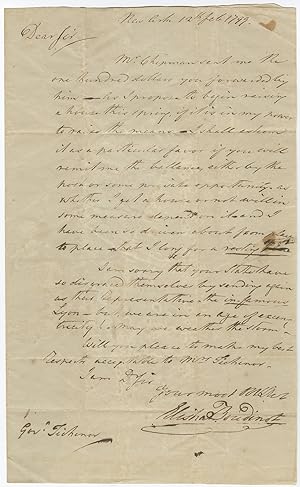 New Ark 12th Feb 1799.
Dear Sir,
Mr Chipman sent me the
one hundred dollars you forwarded by
him — As I propose to begin raising
a house this spring if it is in my power
to raise the means — I shall esteem
it as a particular favor if you will
remit me the ballance, either by the
post or some private opportunity as
whether I get a house or not will in
some measure depend on it and I
have been so driven about from place
to place that I long for a resting
I am sorry that your State have
so disgraced themselves by sending again
as their Representative the infamous
Lyon — but we are in an age of eccen
tricity & may we weather the storm.
Will you please to make my best
Respects acceptable to Mrs Tichenor.
I am D Sir
Your most Obt Servt
Elisha Boudinot
Govr Tichenor